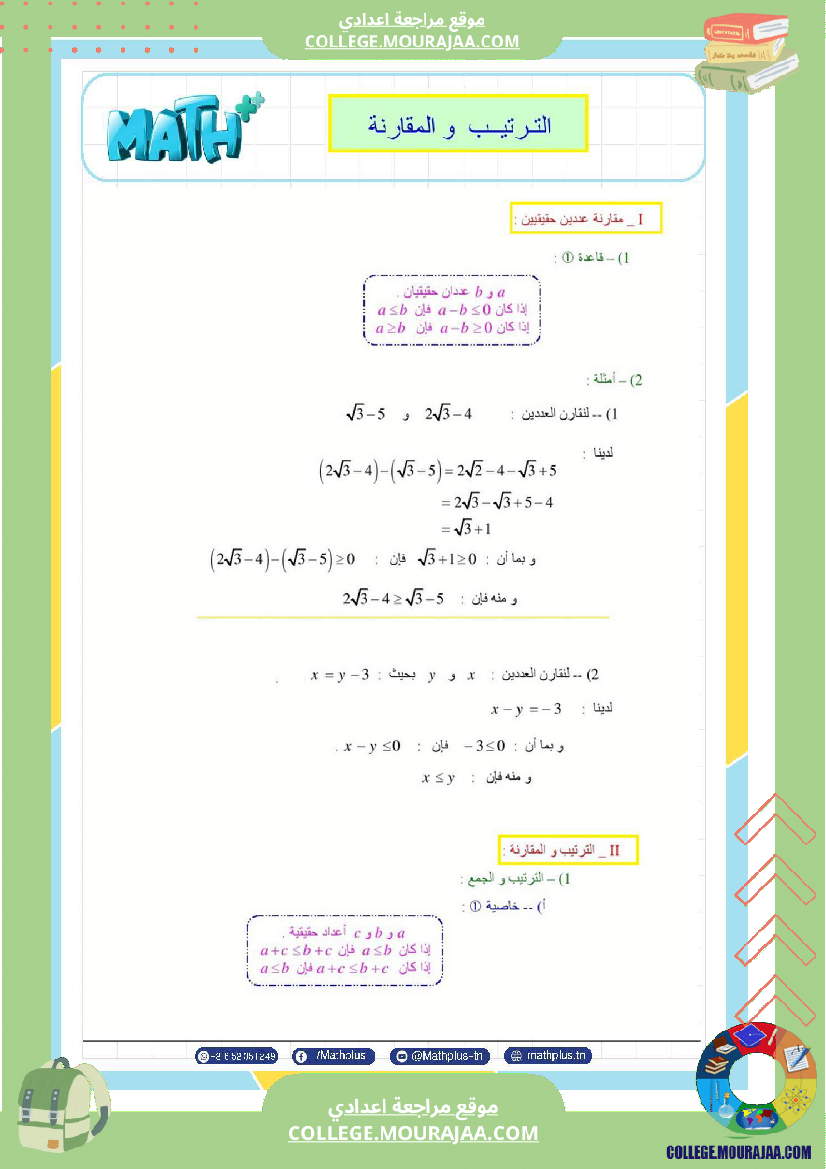 موقع مراجعة اعدادي
COLLEGE.MOURAJAA.COM
MATH++
التـرتيـــب و المقارنة
I _ مقارنة عددين حقيقيين :
1) – قاعدة ① :
a و b عددان حقيقيان .
إذا كان a – b ≤ 0 فإن a ≤ b
إذا كان a – b ≥ 0 فإن a ≥ b
2) – أمثلة :
1) -- لنقارن العددين : 2√3 – 4 و √3 – 5
لدينا :
(2√3 – 4) – (√3 – 5) = 2√2 – 4 – √3 + 5
= 2√3 – √3 + 5 – 4
= √3 + 1
و بما أن : √3 + 1 ≥ 0 فإن : (2√3 – 4) – (√3 – 5) ≥ 0
و منه فإن : 2√3 – 4 ≥ √3 – 5
2) -- لنقارن العددين : x و y بحيث : x = y – 3 .
لدينا : x – y = – 3
و بما أن : – 3 ≤ 0 فإن : x – y ≤ 0 .
و منه فإن : x ≤ y
II _ الترتيب و المقارنة :
1) – الترتيب و الجمع :
أ) -- خاصية ① :
a و b و c أعداد حقيقية .
إذا كان a ≤ b فإن a + c ≤ b + c
إذا كان a + c ≤ b + c فإن a ≤ b
/Mathplus
@Mathplus-tn
mathplus.tn
موقع مراجعة اعدادي
COLLEGE.MOURAJAA.COM
COLLEGE.MOURAJAA.COM